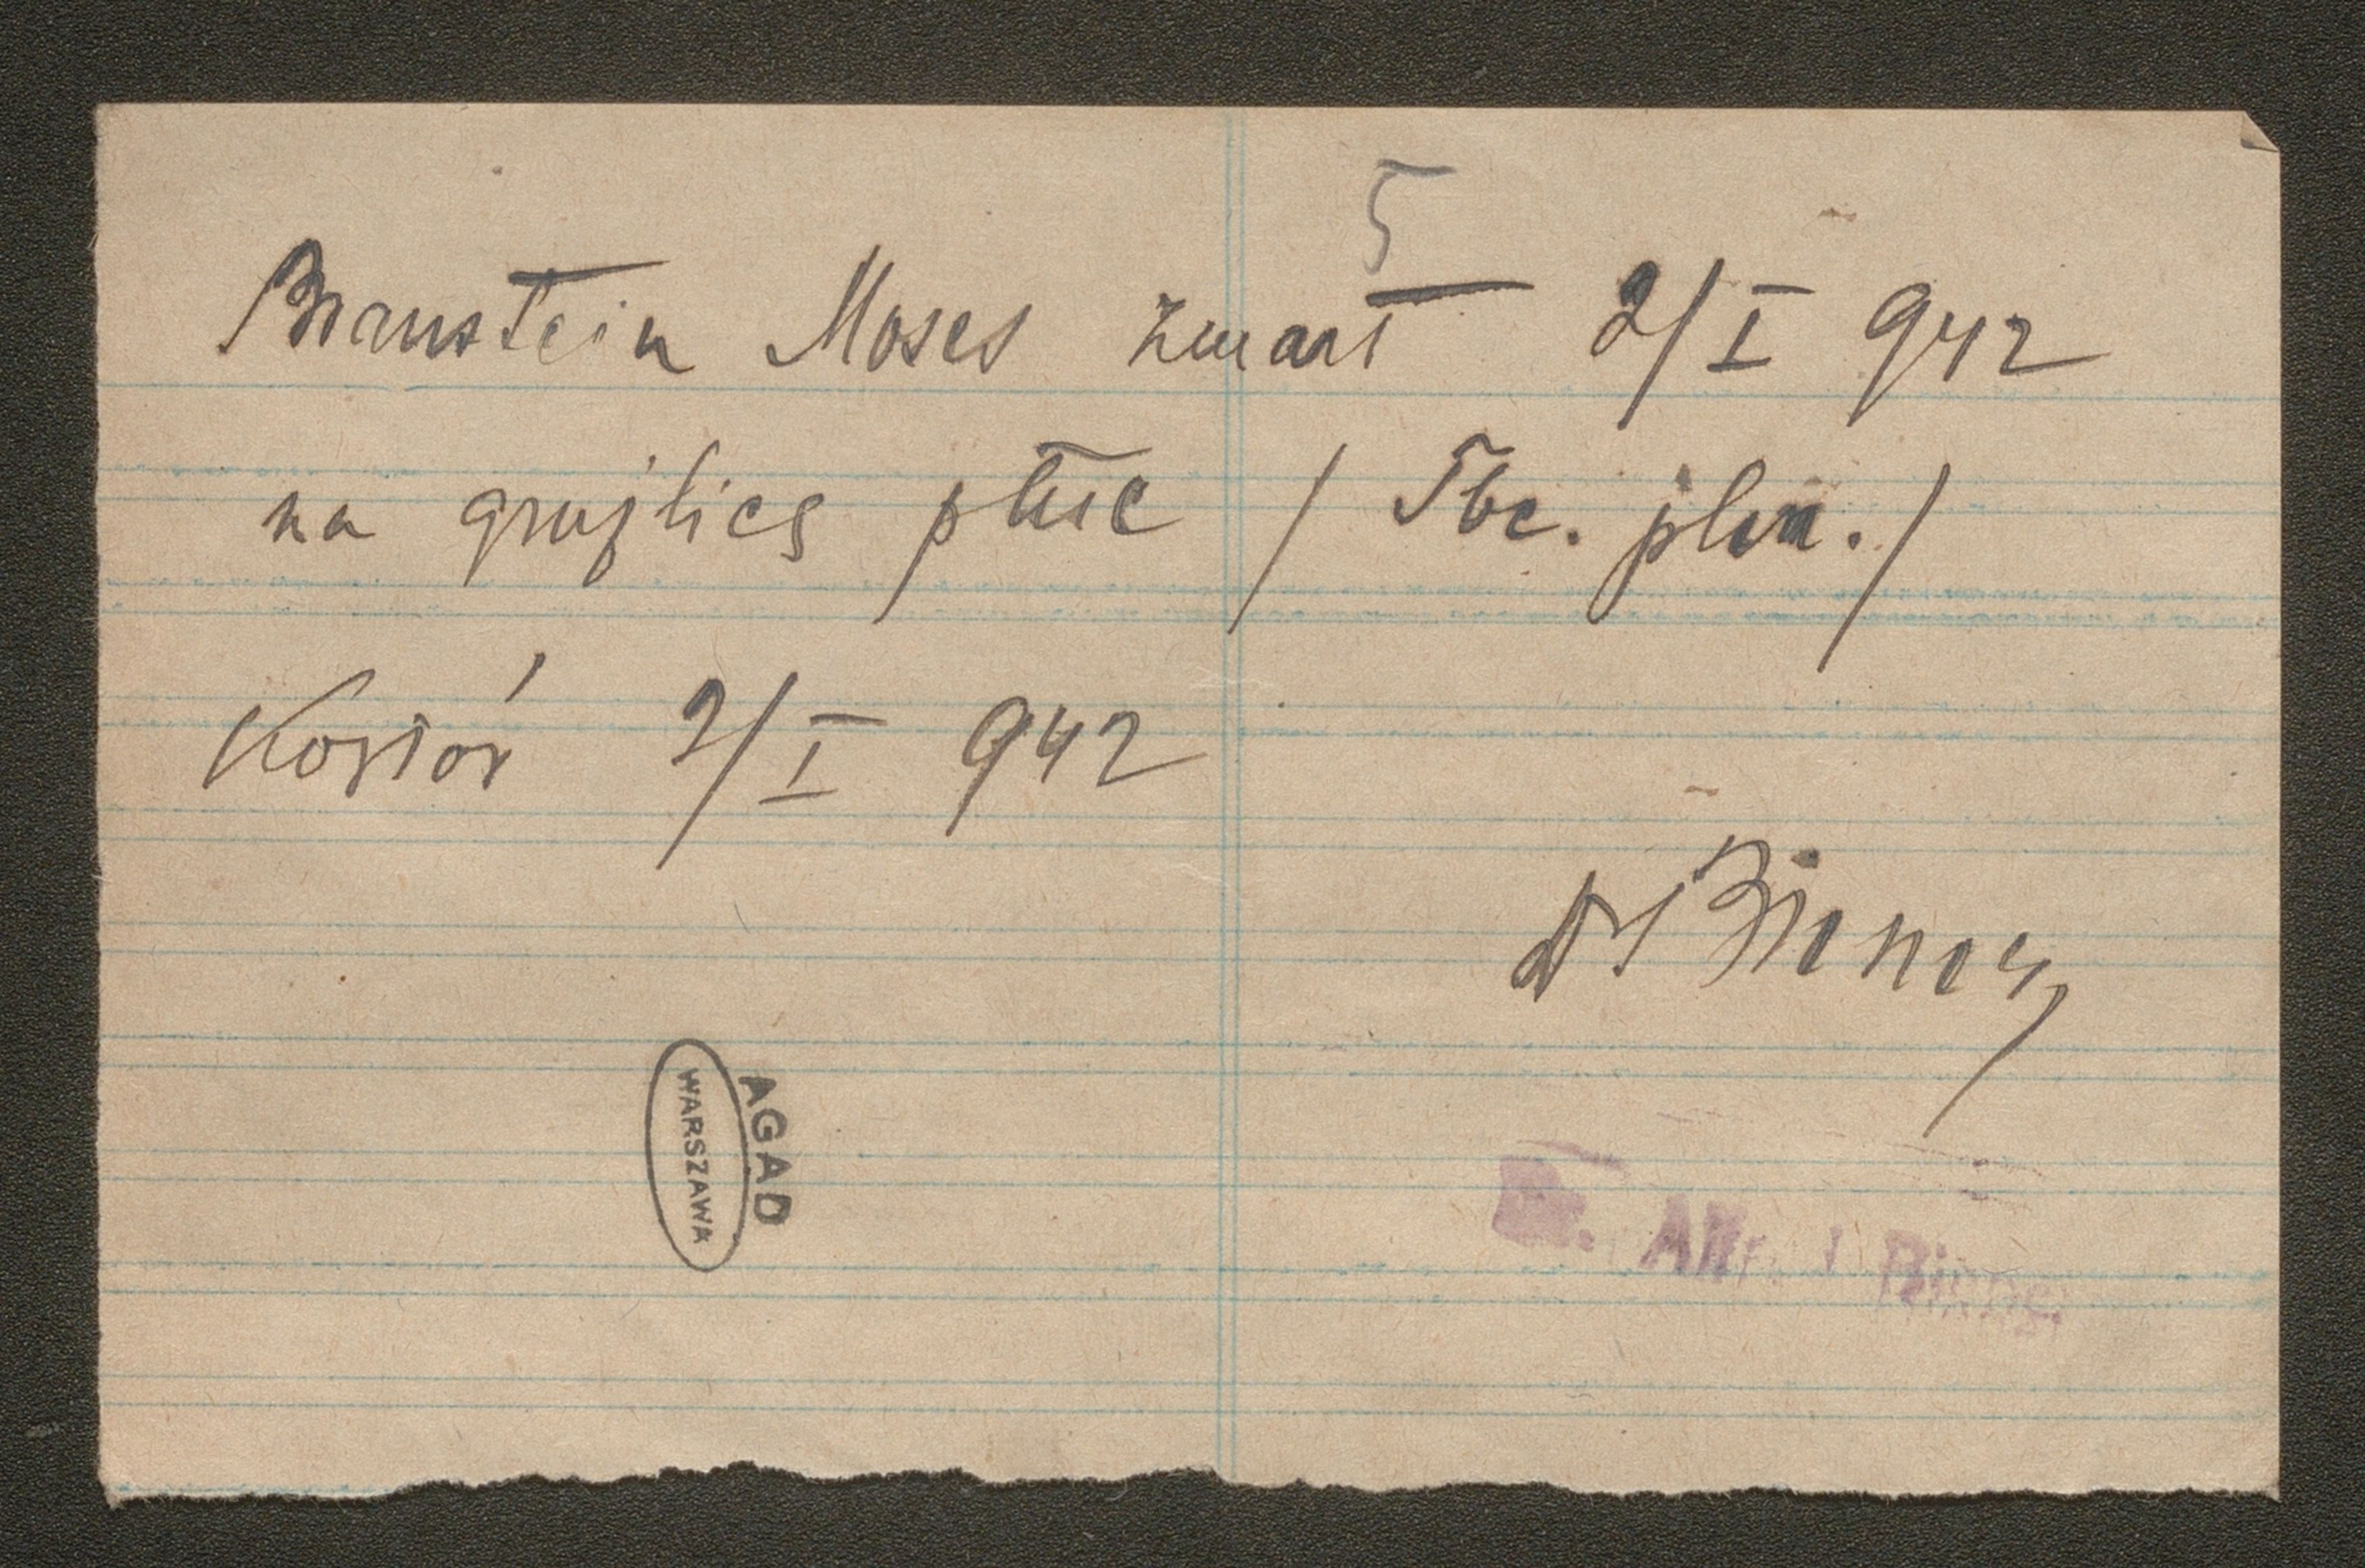 5
Braunstein Moses zmarł 2/I 942
na gruźlicę płuc / Tbc. plm. /
Kosów 2/I 942
Dr Binder
Dr. Alfred
AGAD
WARSZAWA